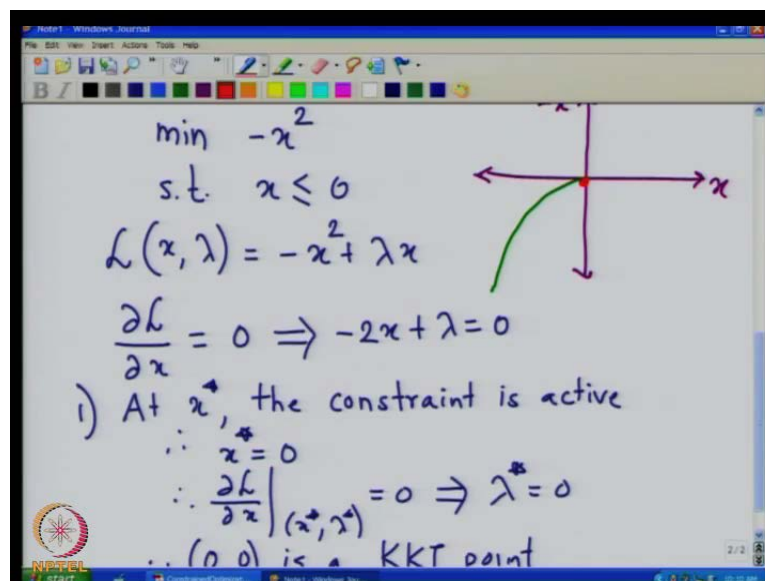 Note1 - Windows Journal
File Edit View Insert Actions Tools Help
B I
min -x²
s.t. x ≤ 0
x
L(x, λ) = -x² + λx
∂L/∂x = 0 ⇒ -2x + λ = 0
1) At x*, the constraint is active
∴ x* = 0
∴ ∂L/∂x |(x*, λ*) = 0 ⇒ λ* = 0
∴ (0,0) is a KKT point
2/2
NPTEL
start